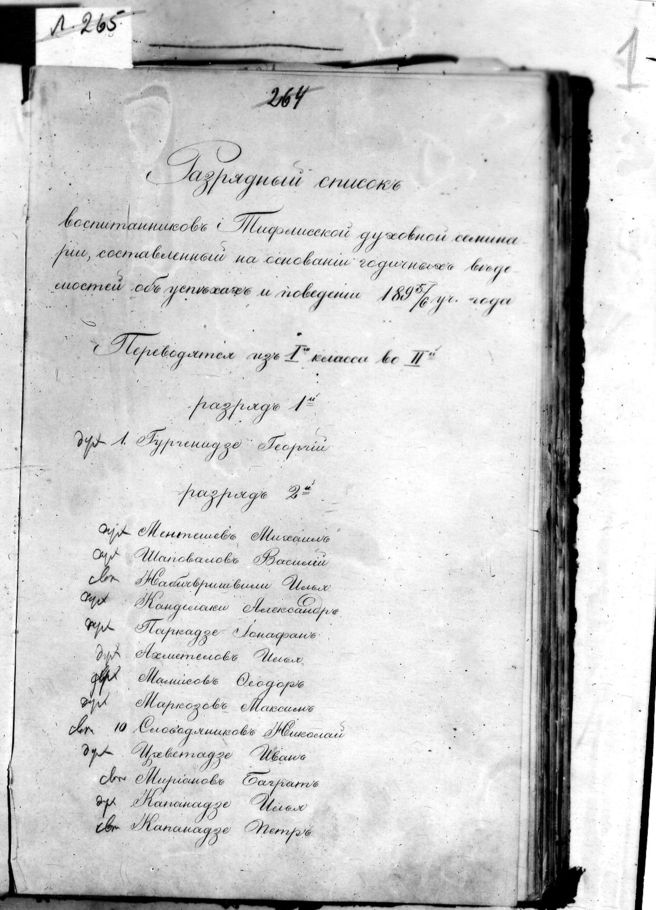 л. 265
1
264
Разрядный списокъ
воспитанниковъ Тифлисской духовной семина
рии, составленный на основаніи годичныхъ вѣдо
мостей объ успѣхахъ и поведеніи 1895/6 уч. года
Переводятся изъ I го класса во II й
разрядъ 1 й
дух 1. Гургенидзе Георгій
разрядъ 2 й
дух Ментешевъ Михаилъ
дух Шаповаловъ Василій
свт Илья
дух Канделаки Александръ
дух Паркадзе Іонафанъ
дух Ахметеловъ Илья
Ѳеодоръ
дух Маркозовъ Максимъ
свт 10 Слободяниковъ Николай
дух Цхветадзе Иванъ
свт Миріановъ Багратъ
дух Капанадзе Илья
свт Капанадзе Петръ